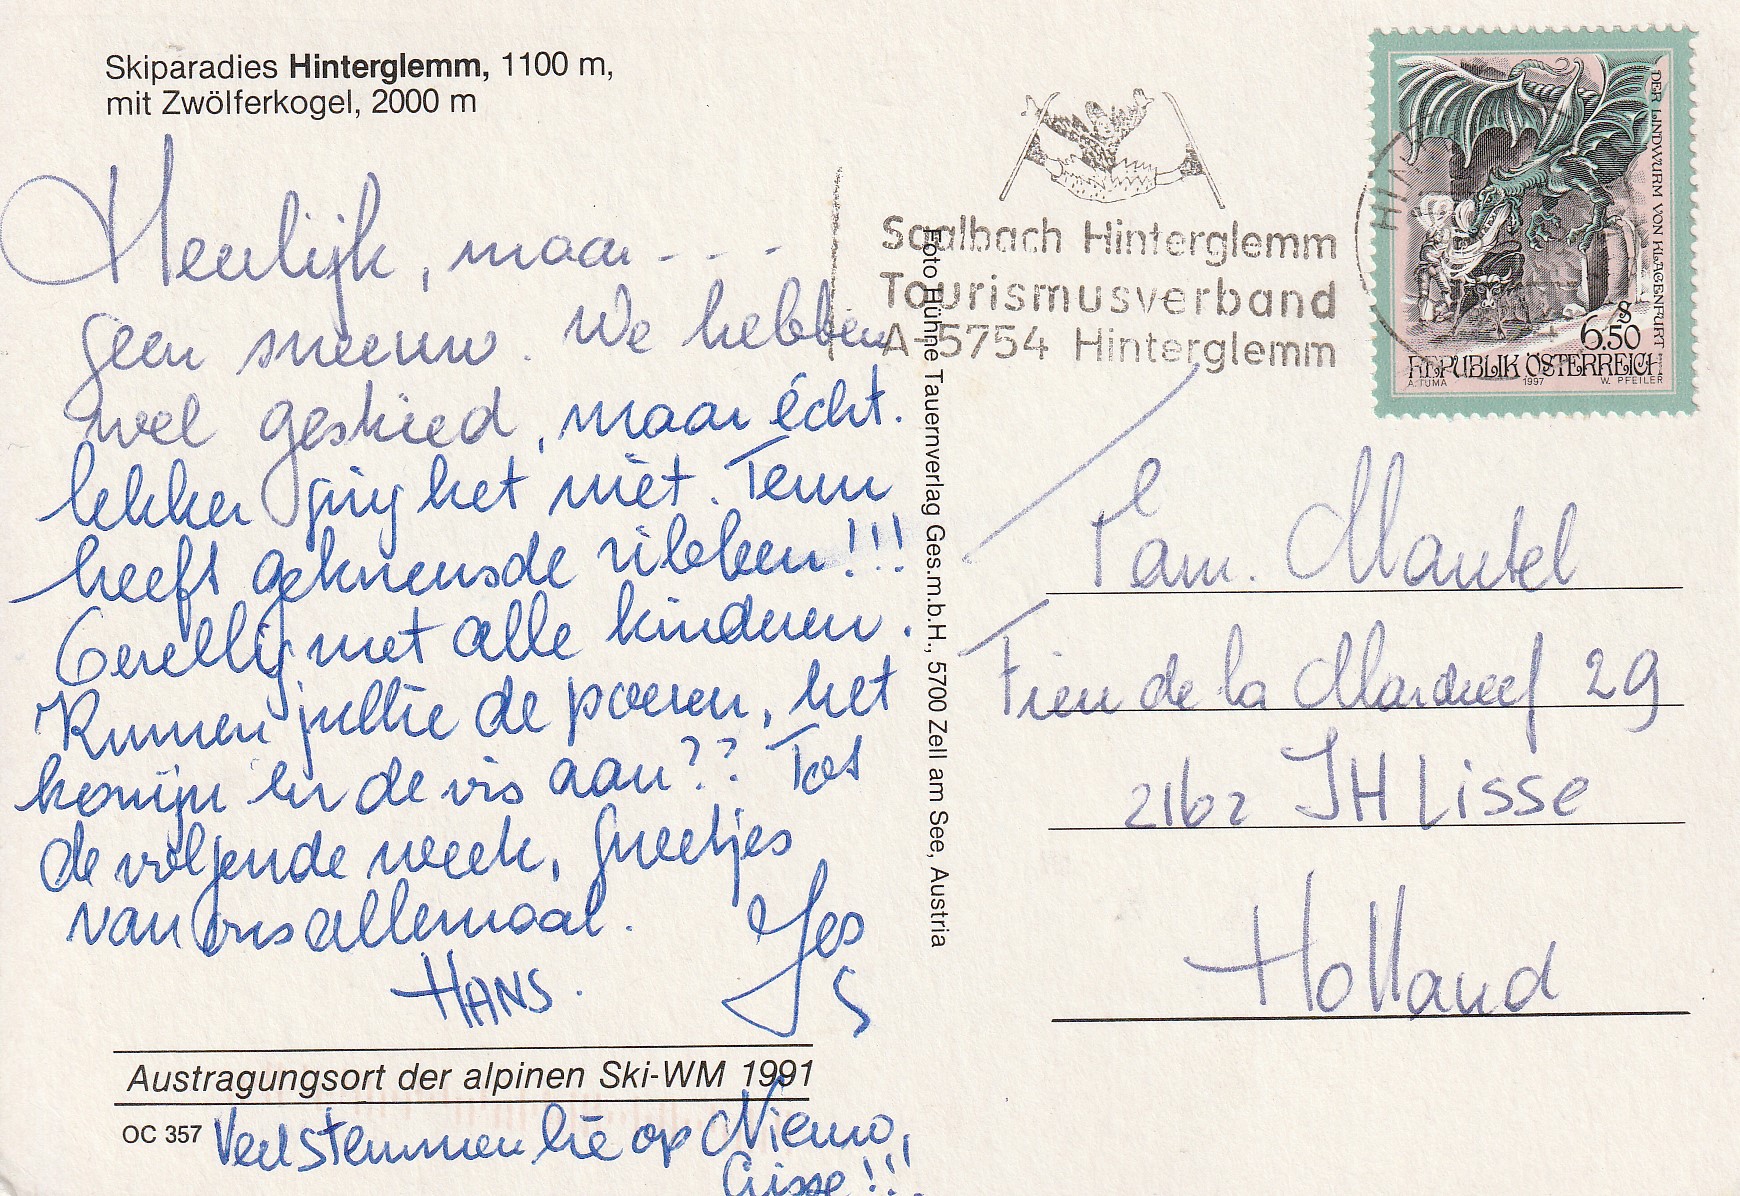 Skiparadies Hinterglemm, 1100 m,
mit Zwölferkogel, 2000 m
Heerlijk, maar - - -
geen sneeuw. We hebben
wel geskied, maar écht.
lekker ging het niet. Teun
heeft gekneusde ribben!!!
Gezellig met alle kinderen.
Kunnen jullie de poezen, het
konijn en de vis aan?? Tot
de volgende week, Groetjes
van ons allemaal.
HANS.
Austragungsort der alpinen Ski-WM 1991
OC 357
op Niemo,
!!!
Foto Hühne Tauernverlag Ges.m.b.H., 5700 Zell am See, Austria
Saalbach Hinterglemm
Tourismusverband
A-5754 Hinterglemm
DER LINDWURM VON KLAGENFURT
S
6.50
REPUBLIK ÖSTERREICH
A. TUMA 1997 W. PFEILER
Fam. Mantel
Fien de la Mardreef 29
2162 JH Lisse
Holland